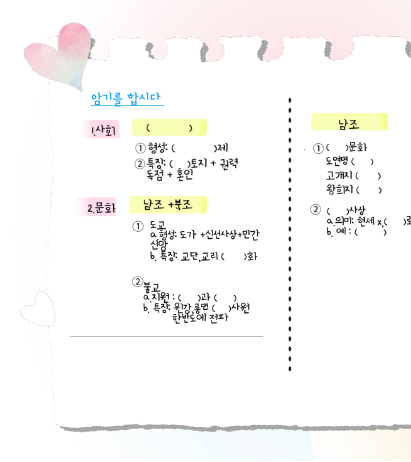 암기를 합시다
1.사회
(        )
① 형성: (        )제
② 특징: (  )토지 + 권력
독점 + 혼인
2.문화
남조 +북조
① 도교
a.형성: 도가 +신선사상+민간
신앙
b. 특징: 교단,교리 (    )화
②불교
a.지원 : (    )과 (    )
b. 특징: 윈강,룽먼 (    )사원
한반도에 전파
남조
① (   )문화
도연명 (    )
고개지 (    )
왕희지 (    )
② (   )사상
a.의미: 현세 x,(    )
b. 예 : (      )